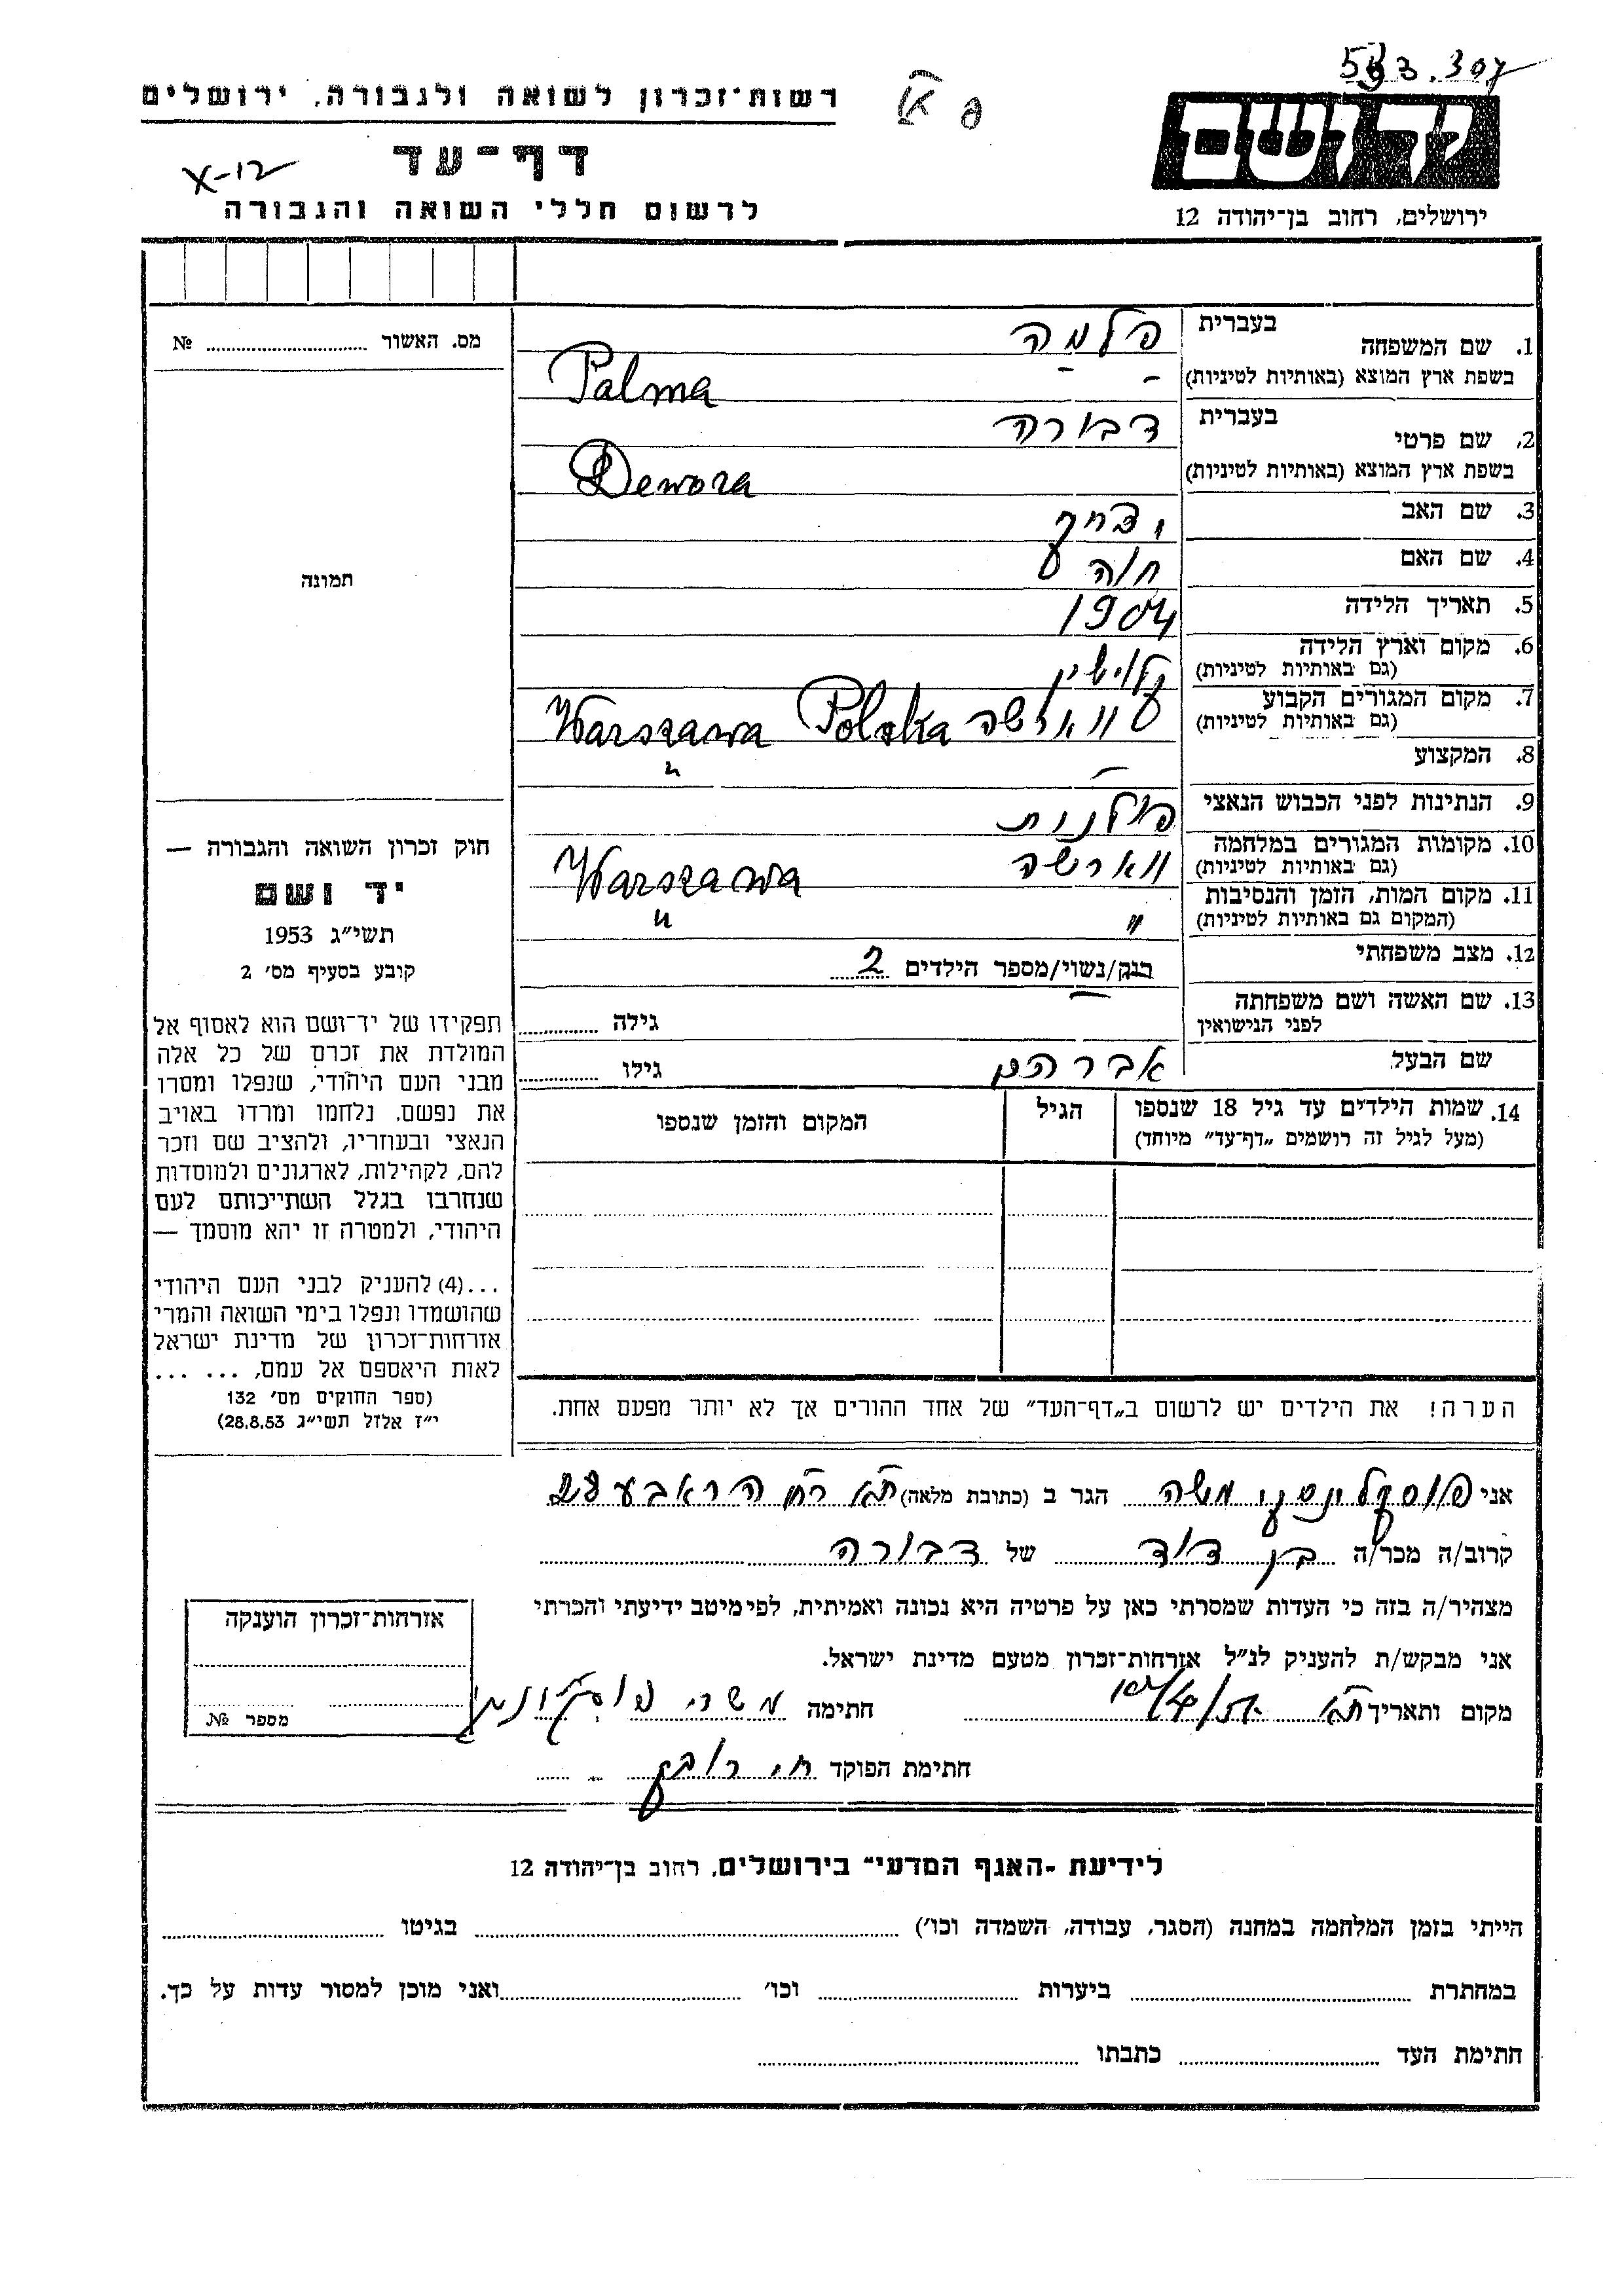 533.307
רשות־זכרון לשואה ולגבורה, ירושלים
יד ושם
דף־עד
X-12
לרשום חללי השואה והגבורה
ירושלים, רחוב בן־יהודה 12
מס. האשור № 
תמונה
1. שם המשפחה בעברית פלמה
בשפת ארץ המוצא (באותיות לטיניות) Palma
2. שם פרטי בעברית דבורה
בשפת ארץ המוצא (באותיות לטיניות) Dewora
3. שם האב יצחק
4. שם האם חוה
5. תאריך הלידה 1904
6. מקום וארץ הלידה
(גם באותיות לטיניות)
7. מקום המגורים הקבוע ווארשה Warszawa Polska
(גם באותיות לטיניות)
8. המקצוע — "
9. הנתינות לפני הכבוש הנאצי פולנית
10. מקומות המגורים במלחמה ווארשה Warszawa
(גם באותיות לטיניות)
11. מקום המות, הזמן והנסיבות " "
(המקום גם באותיות לטיניות)
12. מצב משפחתי רווק/נשוי/מספר הילדים 2
13. שם האשה ושם משפחתה — גילה
לפני הנישואין
שם הבעל אברהם גילו
14. שמות הילדים עד גיל 18 שנספו הגיל המקום והזמן שנספו
(מעל לגיל זה רושמים "דף־עד" מיוחד)
הערה! את הילדים יש לרשום ב"דף־העד" של אחד ההורים אך לא יותר מפעם אחת.
חוק זכרון השואה והגבורה —
יד ושם
תשי"ג 1953
קובע בסעיף מס' 2
תפקידו של יד־ושם הוא לאסוף אל
המולדת את זכרם של כל אלה
מבני העם היהודי, שנפלו ומסרו
את נפשם, נלחמו ומרדו באויב
הנאצי ובעוזריו, ולהציב שם וזכר
להם, לקהילות, לארגונים ולמוסדות
שנחרבו בגלל השתייכותם לעם
היהודי, ולמטרה זו יהא מוסמך —
...(4) להעניק לבני העם היהודי
שהושמדו ונפלו בימי השואה והמרי
אזרחות־זכרון של מדינת ישראל
לאות היאספם אל עמם, ... ...
(ספר החוקים מס' 132
י"ז אלול תשי"ג 28.8.53)
אני משה הגר ב (כתובת מלאה) ת"א רח'
קרוב/ה מכר/ה בן דוד של דבורה
מצהיר/ה בזה כי העדות שמסרתי כאן על פרטיה היא נכונה ואמיתית, לפי מיטב ידיעתי והכרתי
אני מבקש/ת להעניק לנ"ל אזרחות־זכרון מטעם מדינת ישראל.
מקום ותאריך ת"א חתימה משה
חתימת הפוקד
אזרחות־זכרון הוענקה
מספר №
לידיעת "האגף המדעי" בירושלים, רחוב בן־יהודה 12
הייתי בזמן המלחמה במחנה (הסגר, עבודה, השמדה וכו') בגיטו
במחתרת ביערות וכו' ואני מוכן למסור עדות על כך.
חתימת העד כתבתו